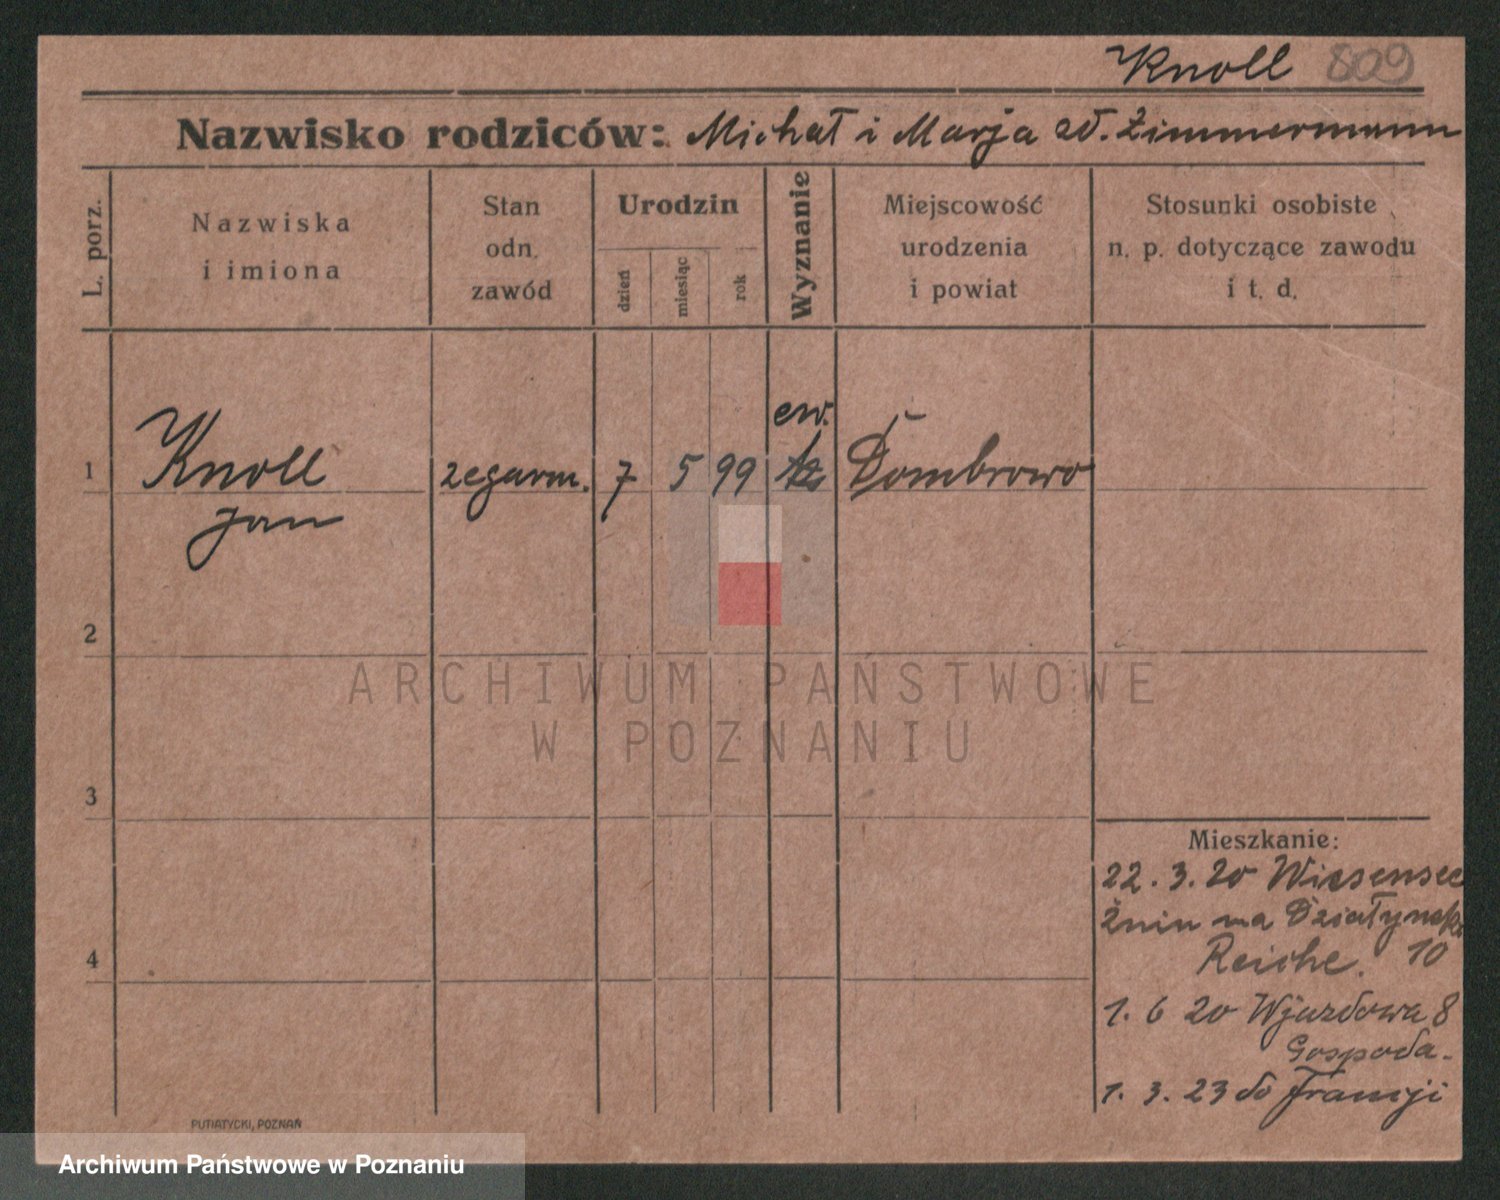 Knoll 809
Nazwisko rodziców: Michał i Marja zd. Zimmermann
L. porz.
Nazwiska
i imiona
Stan
odn.
zawód
Urodzin
dzień
miesiąc
rok
Wyznanie
Miejscowość
urodzenia
i powiat
Stosunki osobiste
n. p. dotyczące zawodu
i t. d.
ew.
1 Knoll zegarm. 7 5 99 Dombrowo
Jan
2
ARCHIWUM PAŃSTWOWE
W POZNANIU
3
Mieszkanie:
22. 3. 20 Wiesensee
Żnin na Działyńsk.
4
Reiche. 10
1. 6 20 Wjazdowa 8
Gospoda.
1. 3. 23 do Francji
PUTIATYCKI, POZNAŃ
Archiwum Państwowe w Poznaniu